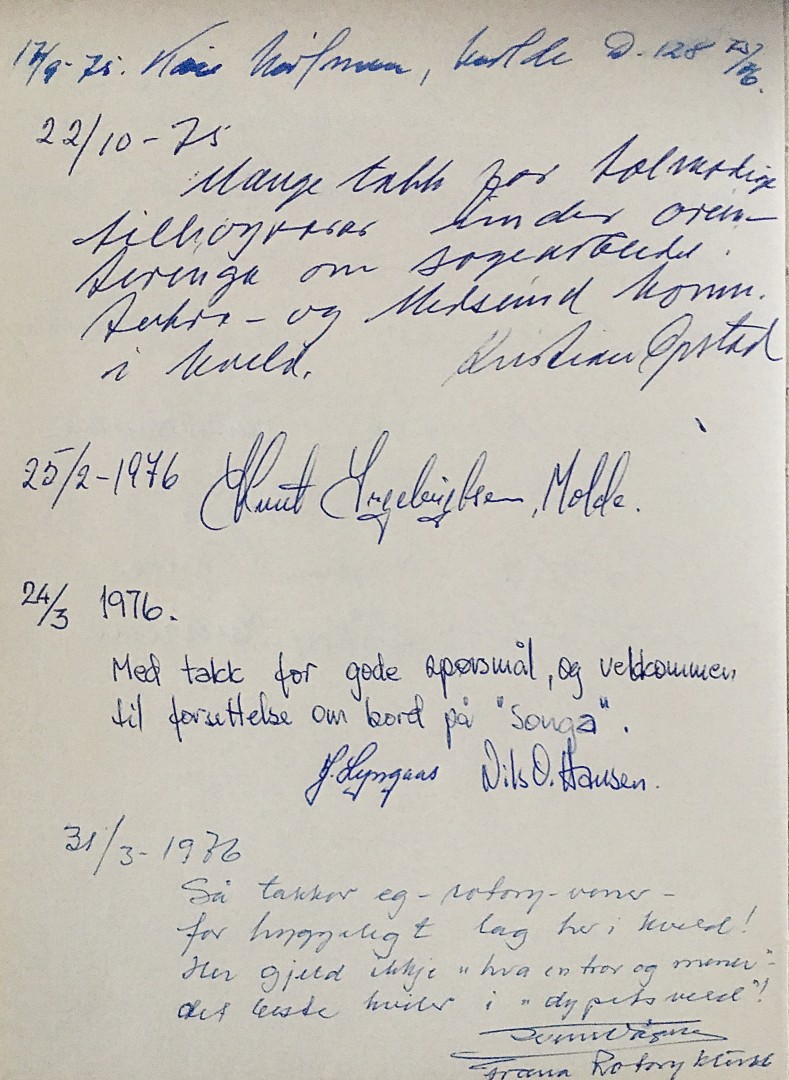 17/9-75. Molde D-128 75/76.
22/10-75
Mange takk for tolmodige
tilhøyrarar under orien-
teringa om sogearbeidet.
i kveld. Kristian Opstad
25/2-1976 Knut Ingebrigtsen, Molde.
24/3 1976.
Med takk for gode spørsmål, og velkommen
til forsettelse om bord på "Songa".
J. Lyngaas Nils O. Hansen.
31/3-1976
Så takkar eg - rotary-vener -
for hyggeligt lag her i kveld!
Her gjeld ikkje "hva en tror og mener" -
det beste kviler i "dypets veld"!
Fræna Rotary klubb